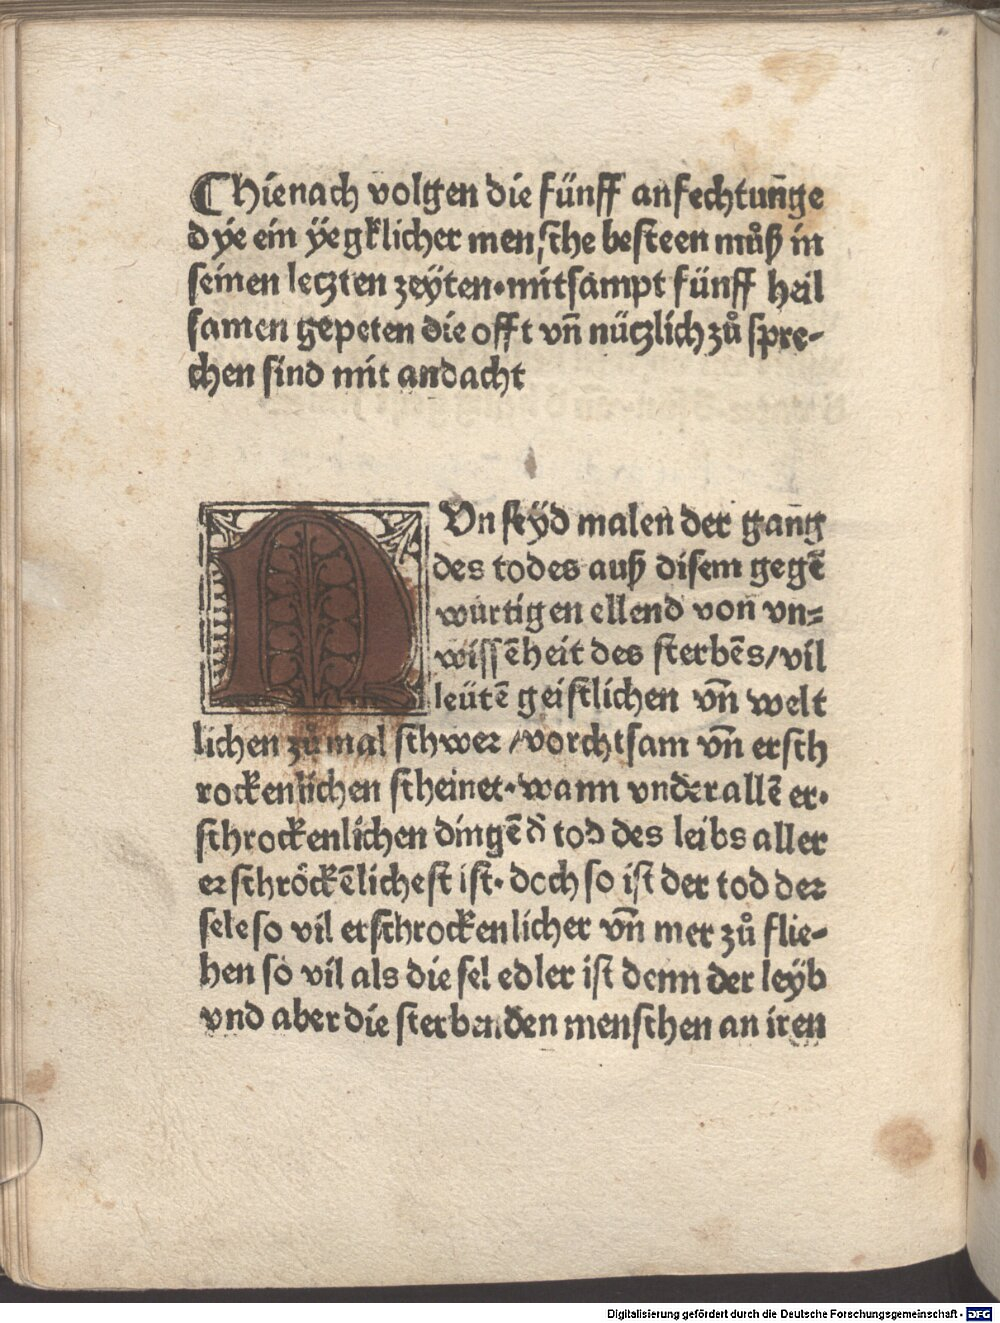 ¶ hienach volgen die fünff anfechtun̄ge
dÿe ein ÿegklicher mensche besteen můß in
seinen letzten zeÿten·mitsampt fünff heil
samen gepeten die offt vn̄ nützlich zů spre-
chen sind mit andacht
NVn seÿd malen der gang
des todes auß disem gegē
würtigen ellend von vn-
wissēheit des sterbēs/vil
leütē geistlichen vn̄ welt
lichen zů mal schwer/vorchtsam vn̄ ersch
rockenlichen scheinet·wann vnder allē er·
schrockenlichen dingē d̄ tod des leibs aller
erschröckēlichest ist·doch so ist der tod der
sele so vil erschrockenlicher vn̄ mer zů flie-
hen so vil als die sel edler ist denn der leÿb
vnd aber die sterbenden menschen an iren
Digitalisierung gefördert durch die Deutsche Forschungsgemeinschaft - DFG